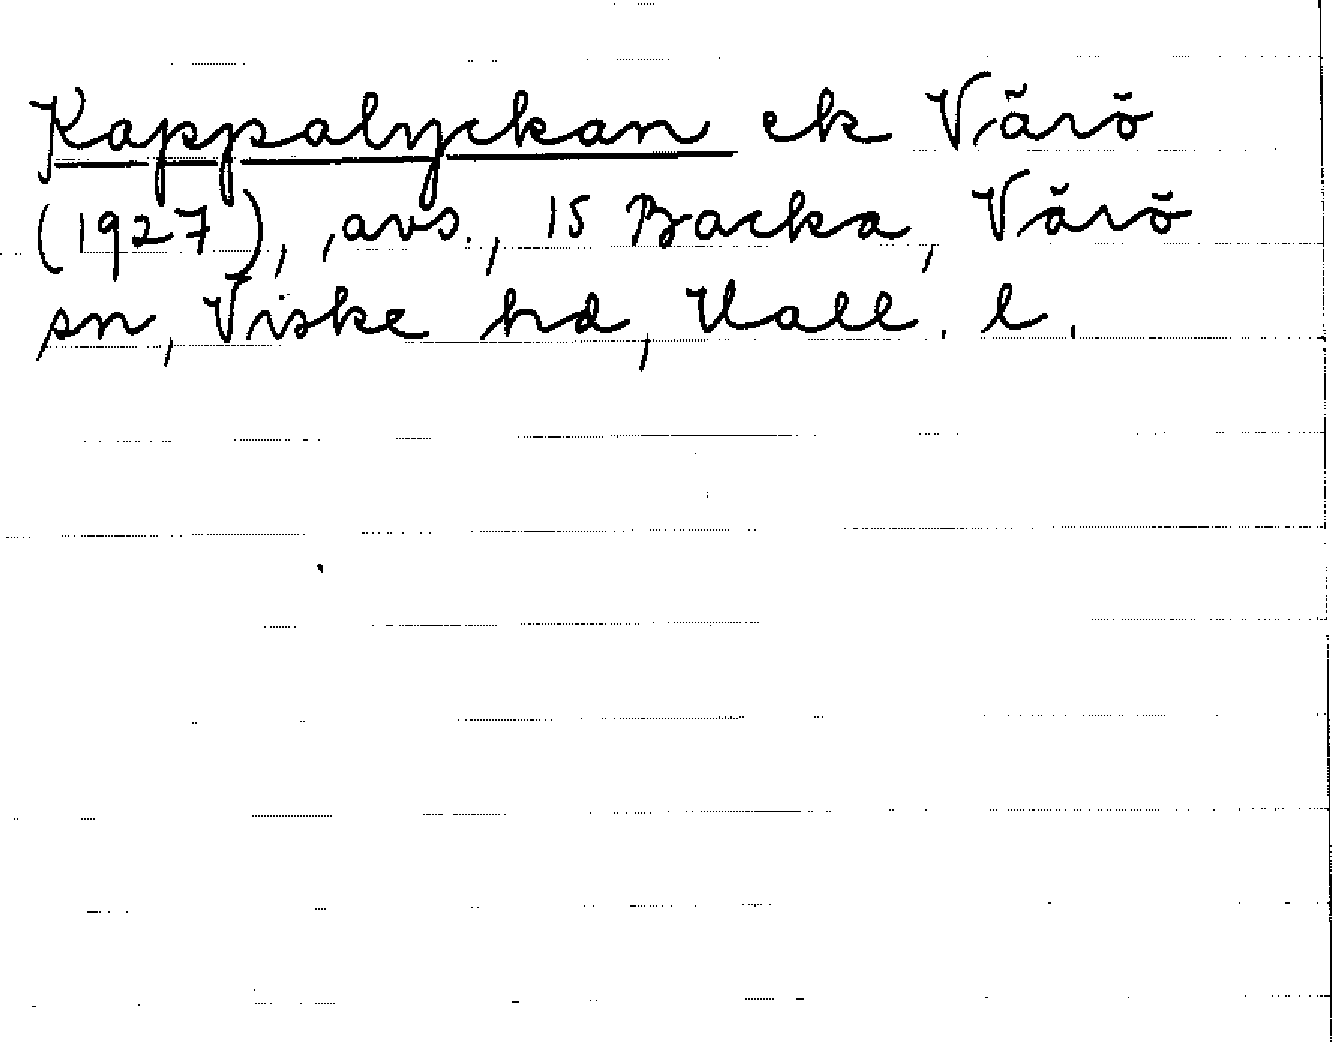 Kappalyckan ek Värö
(1927), avs., 15 Backa, Värö
sn, Viske hd, Hall. l.